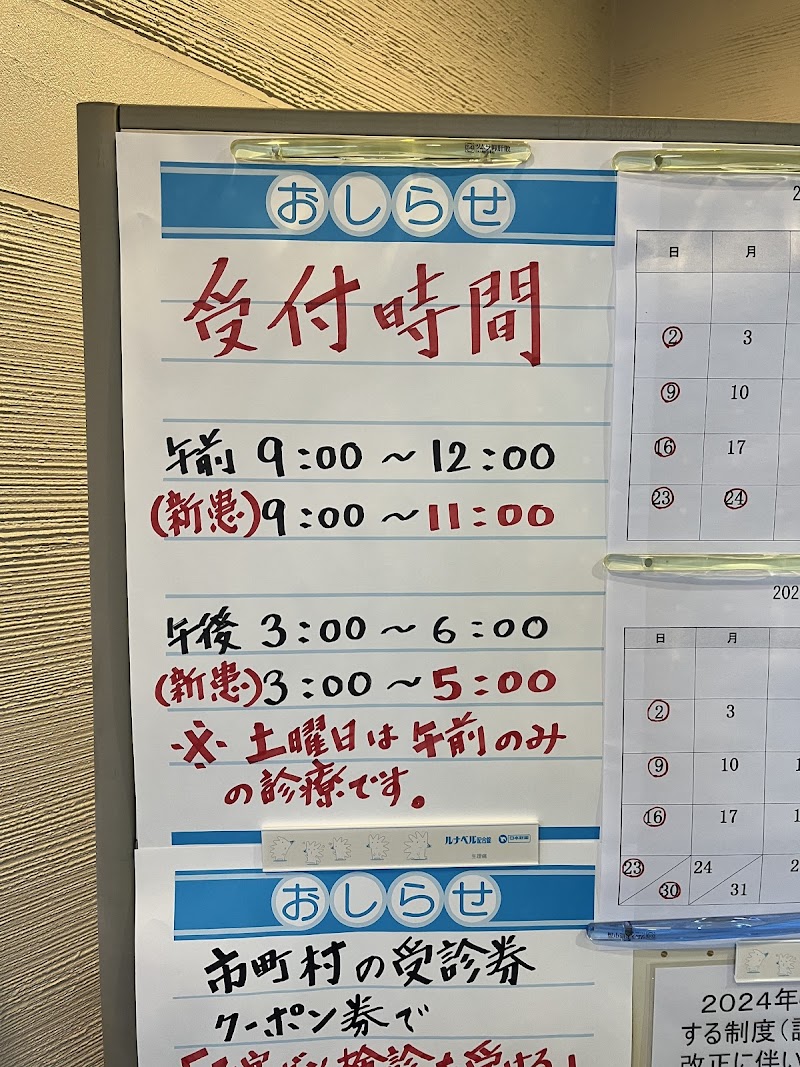 おしらせ
受付時間
午前 9:00 ～ 12:00
(新患) 9:00 ～ 11:00
午後 3:00 ～ 6:00
(新患) 3:00 ～ 5:00
※ 土曜日は午前のみ
の診療です。
ルナベル配合錠 日本新薬
おしらせ
市町村の受診券
クーポン券で
日 月
2 3
9 10
16 17
23 24
202
日 月
2 3
9 10
16 17
23 24
30 31
2024年
する制度(
改正に伴い